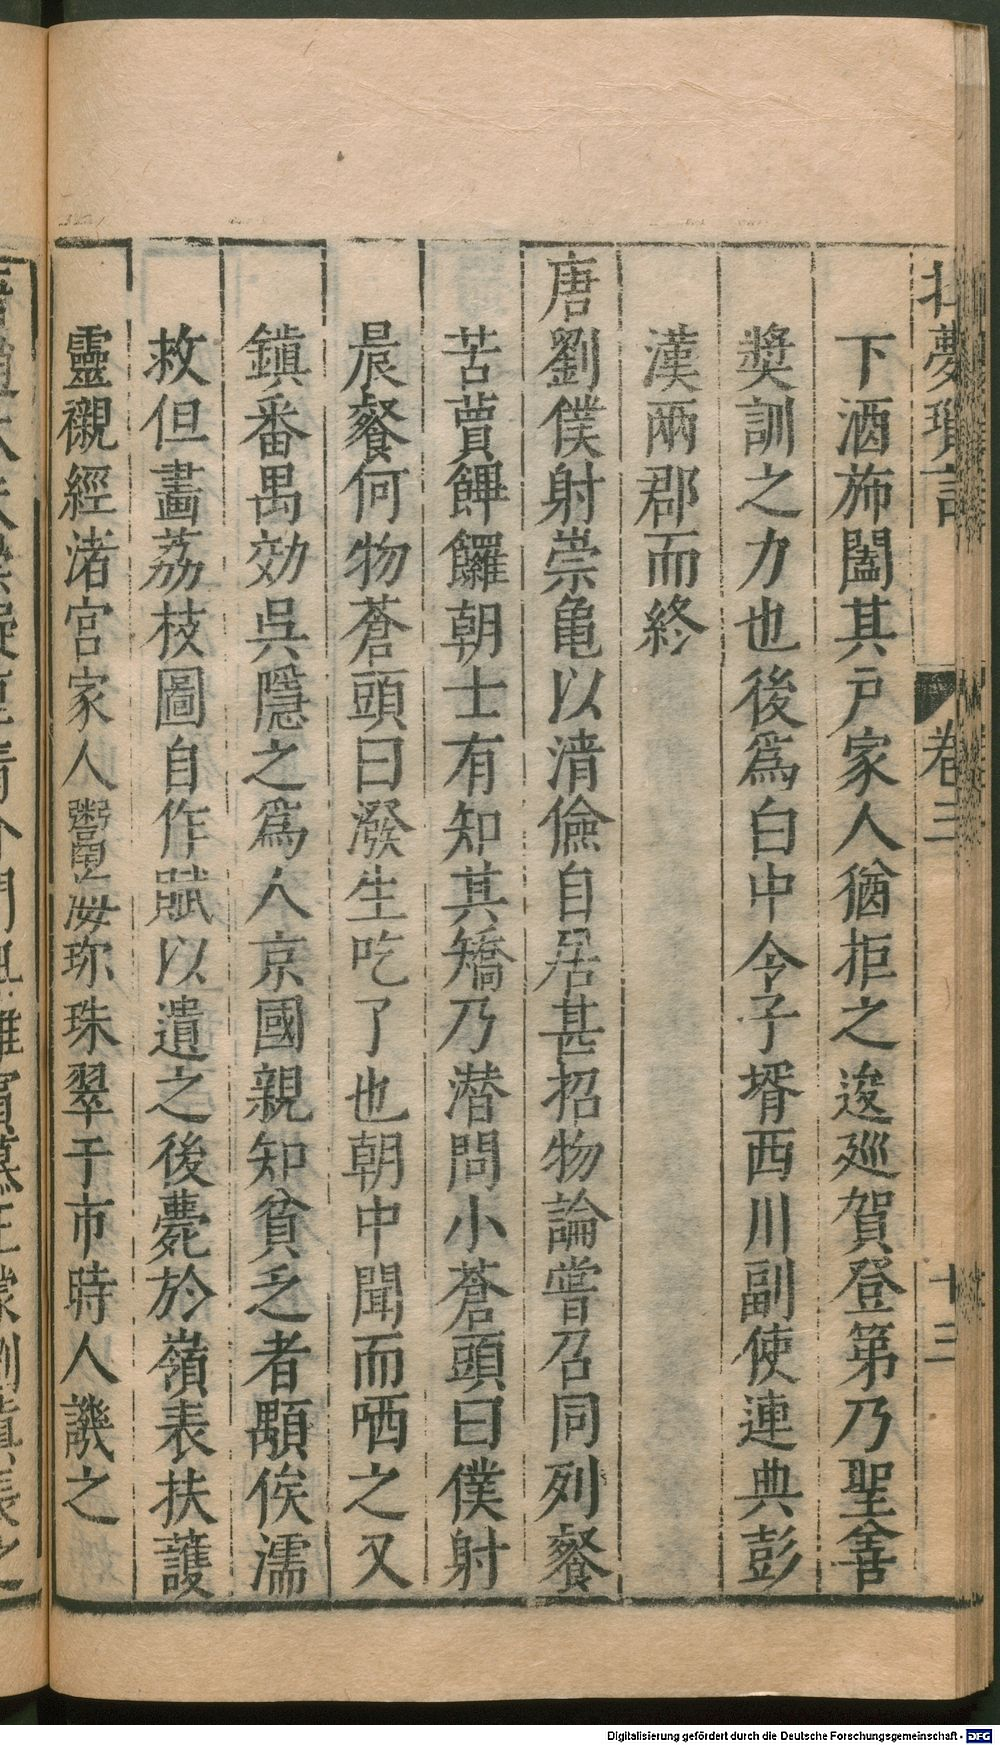 夢瑣言 卷三 十三
下酒施闔其戸家人猶拒之逡廵賀登第乃聖善
奬訓之力也後爲白中令子壻西川副使連典彭
漢兩郡而終
唐劉僕射崇亀以清儉自居甚招物論嘗召同列餐
苦蕒饆饠朝士有知其矯乃潜問小蒼頭曰僕射
晨餐何物蒼頭曰潑生吃了也朝中聞而哂之又
鎮番禺効吳隱之爲人京國親知貧乏者顒俟濡
救但畫荔枝圖自作賦以遺之後薨於嶺表扶護
靈襯經渚宮家人鬻海珎珠翠于市時人譏之
Digitalisierung gefördert durch die Deutsche Forschungsgemeinschaft - DFG